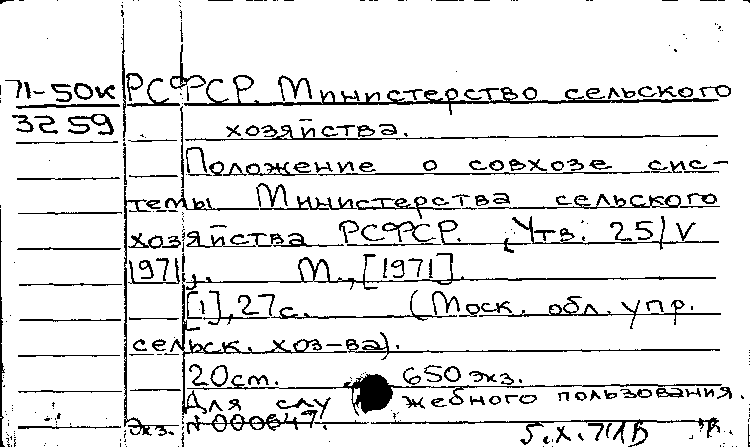 71-50к РСФСР. Министерство сельского
3259 хозяйства.
Положение о совхозе сис-
темы Министерства сельского
хозяйства РСФСР. Утв. 25/V
1971,. М.,[1971].
[1],27с. (Моск. обл. упр.
сельск. хоз-ва).
20см. 650 экз.
Для слу жебного пользования.
Экз. №000647.
5.X.71